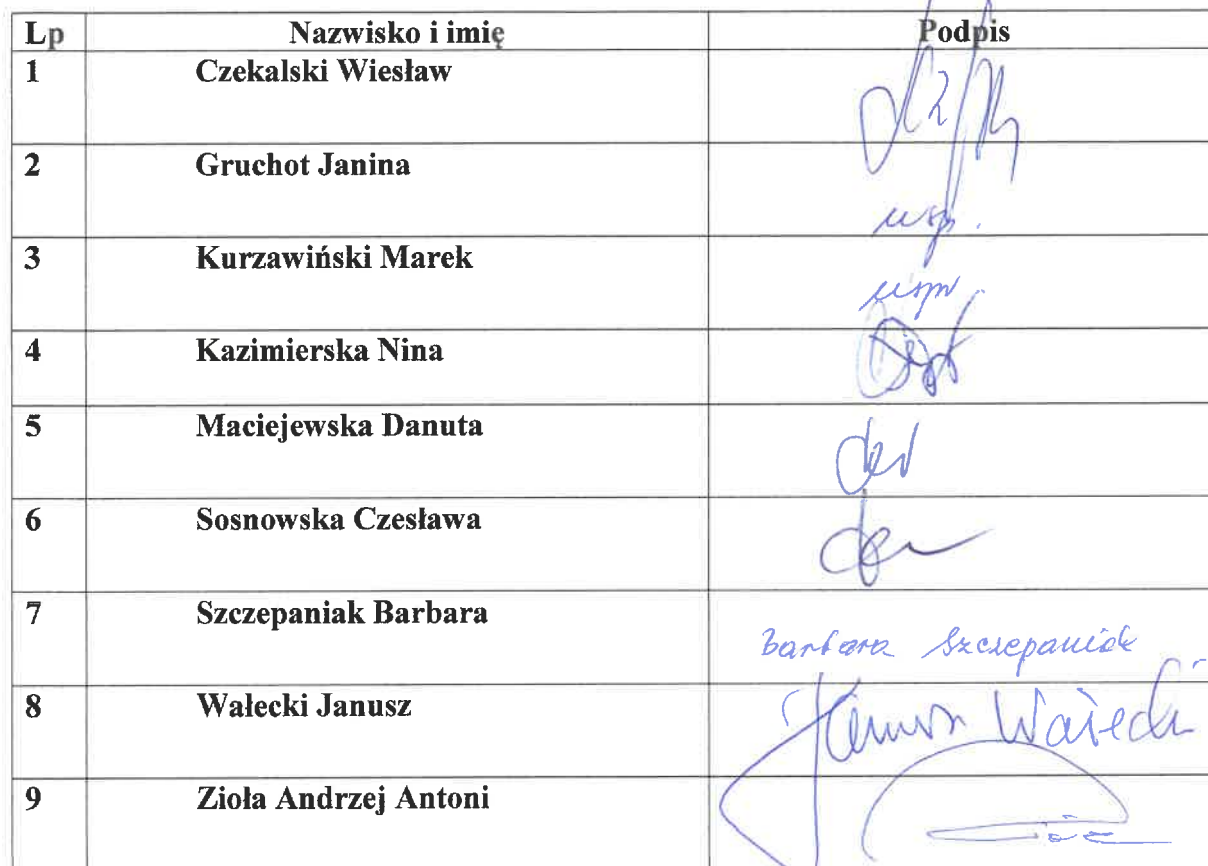 Lp Nazwisko i imię Podpis
1 Czekalski Wiesław
2 Gruchot Janina usp.
3 Kurzawiński Marek
4 Kazimierska Nina
5 Maciejewska Danuta
6 Sosnowska Czesława
7 Szczepaniak Barbara Barbara Szczepaniak
8 Wałecki Janusz Janusz Wałecki
9 Zioła Andrzej Antoni